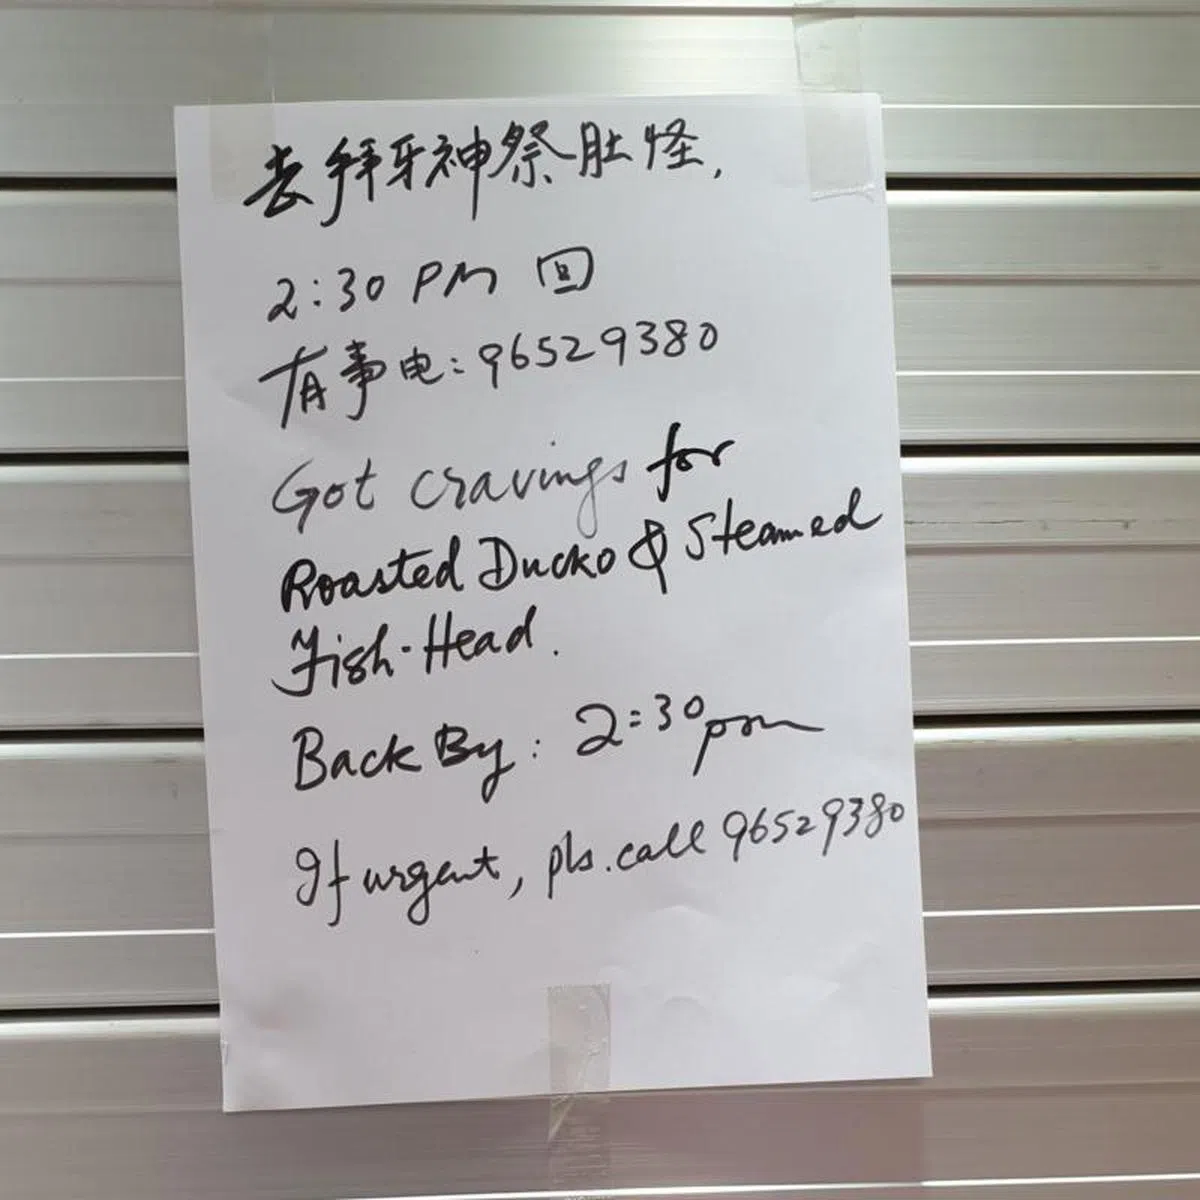 去拜牙神祭肚怪，
2:30 PM 回
有事电：96529380
Got cravings for
Roasted Ducko & Steamed
Fish-Head.
Back By: 2:30pm
If urgent, pls. call 96529380